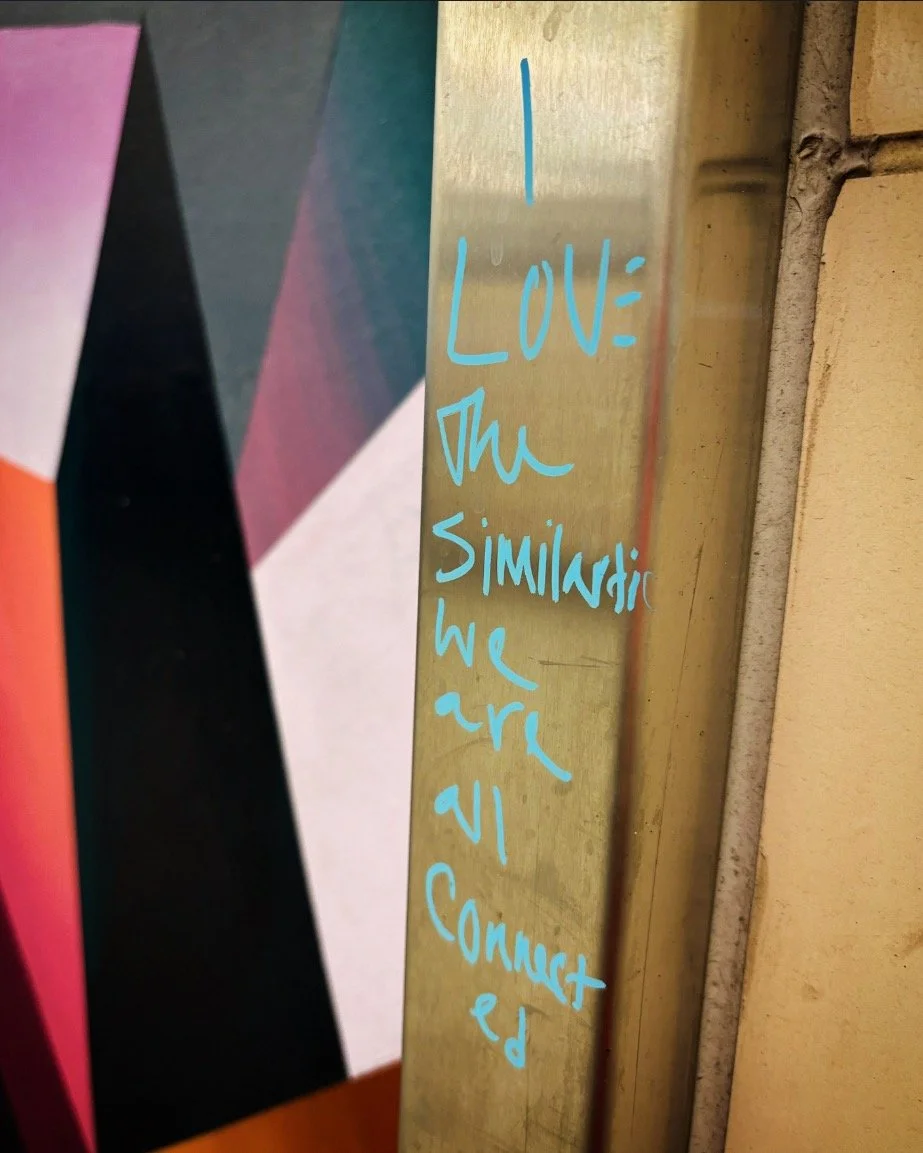 I
LOVE
The
Similarti
we
are
all
Connect
ed